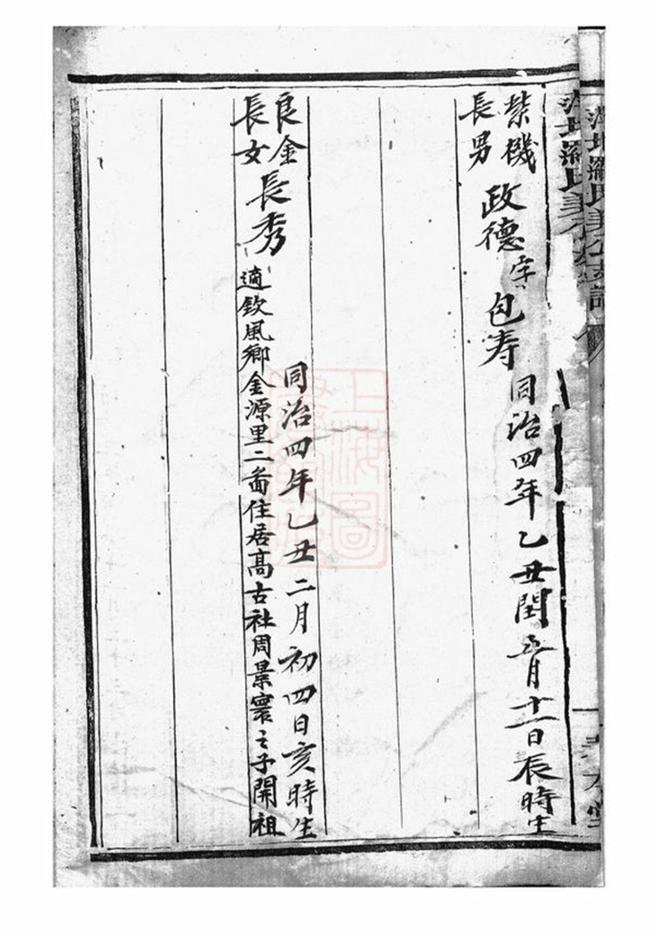 紫機
長男
政德字包寿
同治四年乙丑閏五月十二日辰時生
良金
長女
長秀
同治四年乙丑二月初四日亥時生
適欽風鄉金源里二啚住居高古社周景寰之子開祖
上海圖